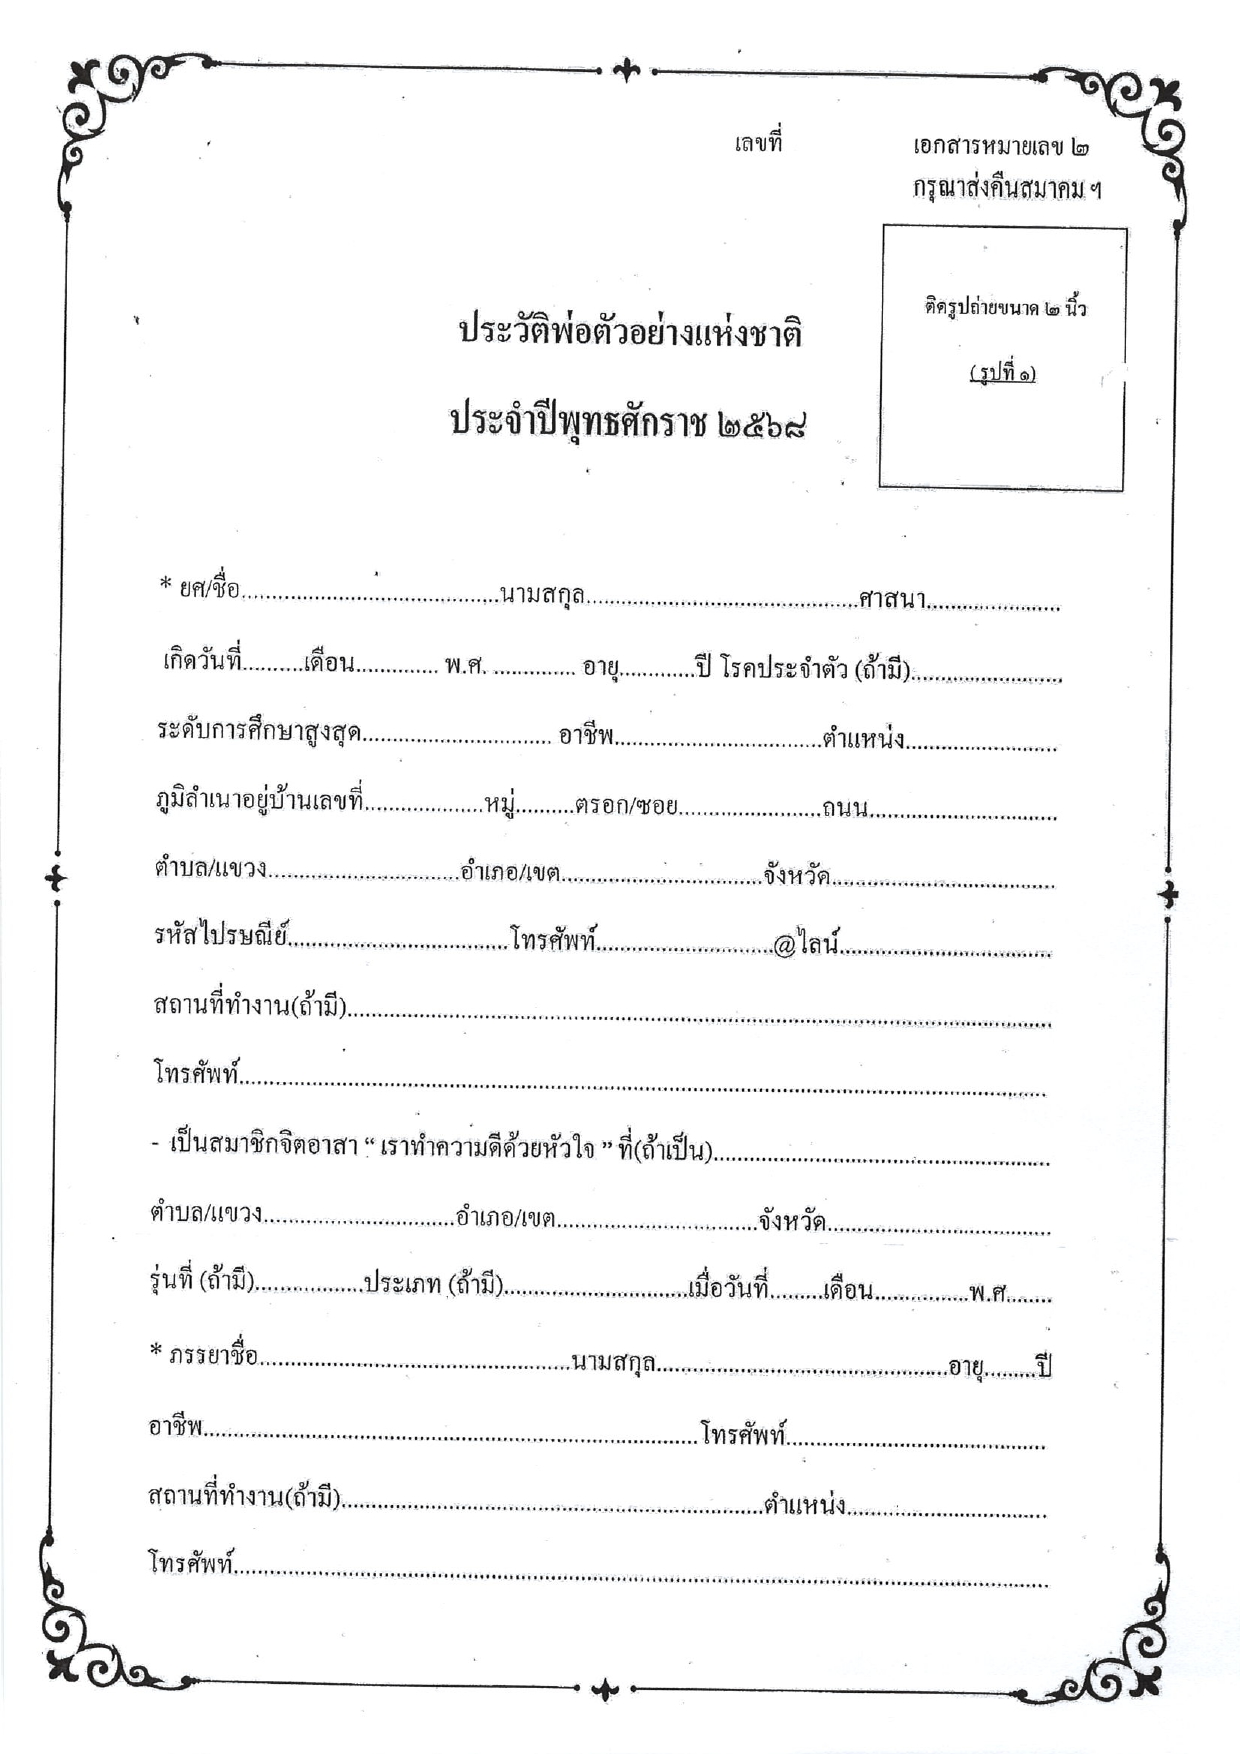 เลขที่ เอกสารหมายเลข ๒
กรุณาส่งคืนสมาคม ฯ
ติดรูปถ่ายขนาด ๒ นิ้ว
(รูปที่ ๑)
ประวัติพ่อตัวอย่างแห่งชาติ
ประจำปีพุทธศักราช ๒๕๖๘
* ยศ/ชื่อ...........................................นามสกุล..............................................ศาสนา......................
เกิดวันที่..........เดือน.............. พ.ศ. .............. อายุ.............ปี โรคประจำตัว (ถ้ามี)..........................
ระดับการศึกษาสูงสุด................................ อาชีพ...................................ตำแหน่ง..........................
ภูมิลำเนาอยู่บ้านเลขที่....................หมู่..........ตรอก/ซอย........................ถนน................................
ตำบล/แขวง................................อำเภอ/เขต..................................จังหวัด......................................
รหัสไปรษณีย์.....................................โทรศัพท์..............................@ไลน์....................................
สถานที่ทำงาน(ถ้ามี)......................................................................................................................
โทรศัพท์.......................................................................................................................................
- เป็นสมาชิกจิตอาสา “ เราทำความดีด้วยหัวใจ ” ที่(ถ้าเป็น).........................................................
ตำบล/แขวง................................อำเภอ/เขต..................................จังหวัด......................................
รุ่นที่ (ถ้ามี)..................ประเภท (ถ้ามี)...............................เมื่อวันที่.........เดือน................พ.ศ........
* ภรรยาชื่อ....................................................นามสกุล.................................................อายุ.........ปี
อาชีพ...................................................................................โทรศัพท์............................................
สถานที่ทำงาน(ถ้ามี).......................................................................ตำแหน่ง..................................
โทรศัพท์.........................................................................................................................................